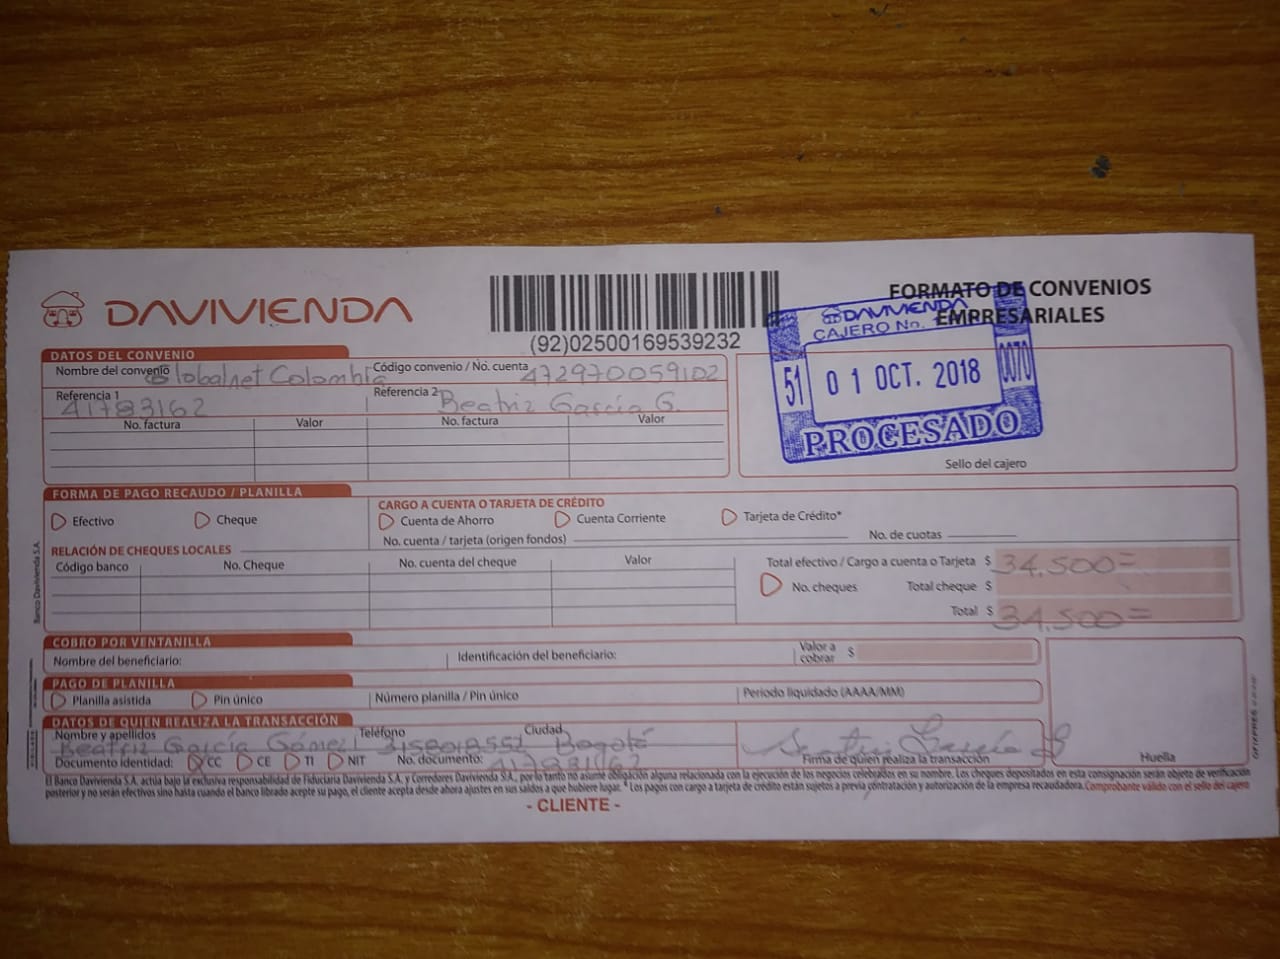 DAVIVIENDA
(92)02500169539232
FORMATO DE CONVENIOS
EMPRESARIALES
DAVIVIENDA
CAJERO No.
51 01 OCT. 2018 0070
PROCESADO
Sello del cajero
DATOS DEL CONVENIO
Nombre del convenio Globalnet Colombia Código convenio / No. cuenta 472970059102
Referencia 1 41783162 Referencia 2 Beatriz García G.
No. factura Valor No. factura Valor
FORMA DE PAGO RECAUDO / PLANILLA
Efectivo Cheque
CARGO A CUENTA O TARJETA DE CRÉDITO
Cuenta de Ahorro Cuenta Corriente Tarjeta de Crédito*
No. cuenta / tarjeta (origen fondos) No. de cuotas
RELACIÓN DE CHEQUES LOCALES
Código banco No. Cheque No. cuenta del cheque Valor
Total efectivo / Cargo a cuenta o Tarjeta $ 34.500=
No. cheques Total cheque $
Total $ 34.500=
COBRO POR VENTANILLA
Nombre del beneficiario: Identificación del beneficiario: Valor a cobrar $
PAGO DE PLANILLA
Planilla asistida Pin único Número planilla / Pin único Periodo liquidado (AAAA/MM)
DATOS DE QUIEN REALIZA LA TRANSACCIÓN
Nombre y apellidos Teléfono Ciudad
Beatriz García Gómez 3158018552 Bogotá
Documento identidad: CC CE TI NIT No. documento: 41783162
Firma de quien realiza la transacción
Huella
El Banco Davivienda S.A. actúa bajo la exclusiva responsabilidad de Fiduciaria Davivienda S.A. y Corredores Davivienda S.A., por lo tanto no asume obligación alguna relacionada con la ejecución de los negocios celebrados en su nombre. Los cheques depositados en esta consignación serán objeto de verificación
posterior y no serán efectivos sino hasta cuando el banco librado acepte su pago, el cliente acepta desde ahora ajustes en sus saldos a que hubiere lugar. * Los pagos con cargo a tarjeta de crédito están sujetos a previa contratación y autorización de la empresa recaudadora. Comprobante válido con el sello del cajero
- CLIENTE -
Banco Davivienda S.A.